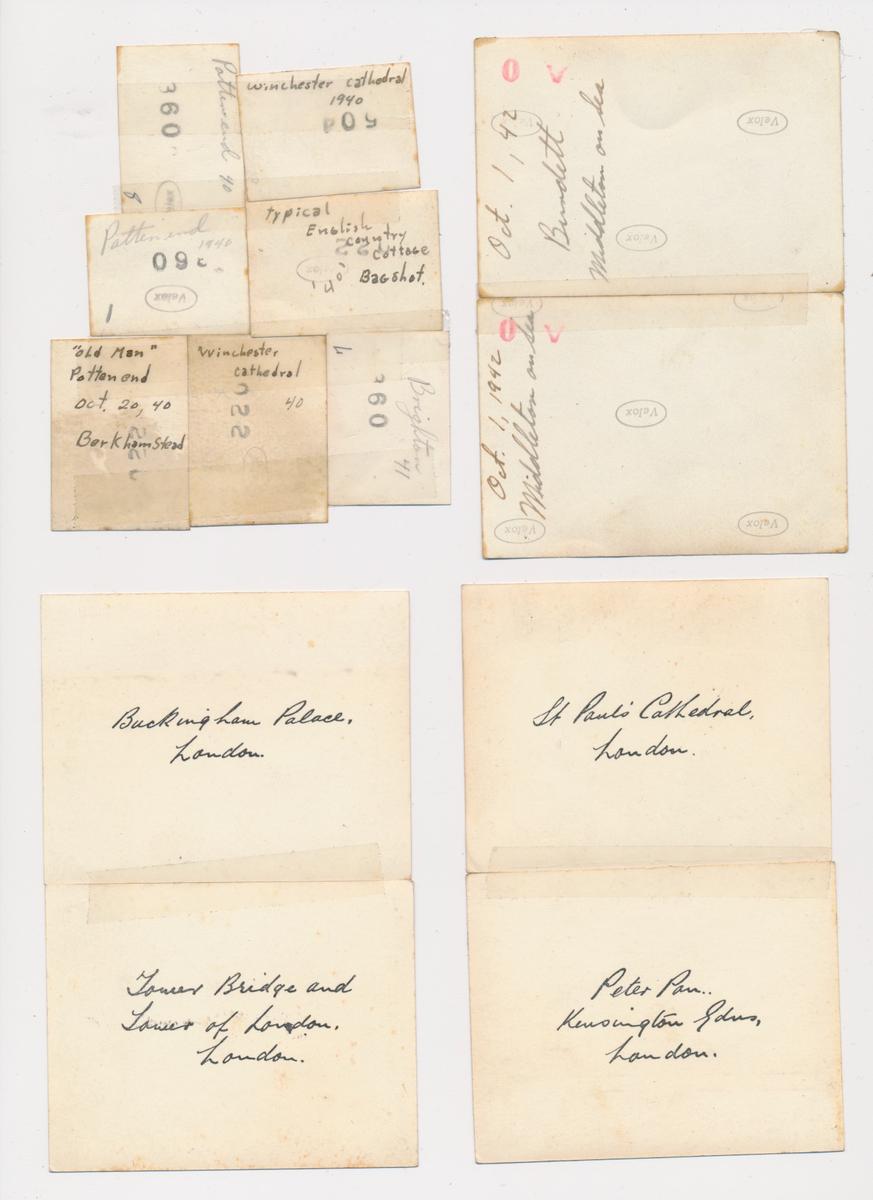 Potten end 40
360
8
Winchester cathedral
1940
504
Potten end
1940
360
Velox
1
Typical
English
country
cottage
Bagshot.
Velox
"Old Man"
Potten end
Oct. 20, 40
Berkhamstead
Winchester
cathedral
40
522
7
360
Brighton
41
O V
Oct. 1, 42
Burdett
Middleton on Sea
Velox
Velox
Velox
O V
Oct. 1, 1942
Middleton on Sea
Velox
Velox
Velox
Buckingham Palace,
London.
St Paul's Cathedral,
London.
Tower Bridge and
Tower of London.
London.
Peter Pan..
Kensington Gdns,
London.